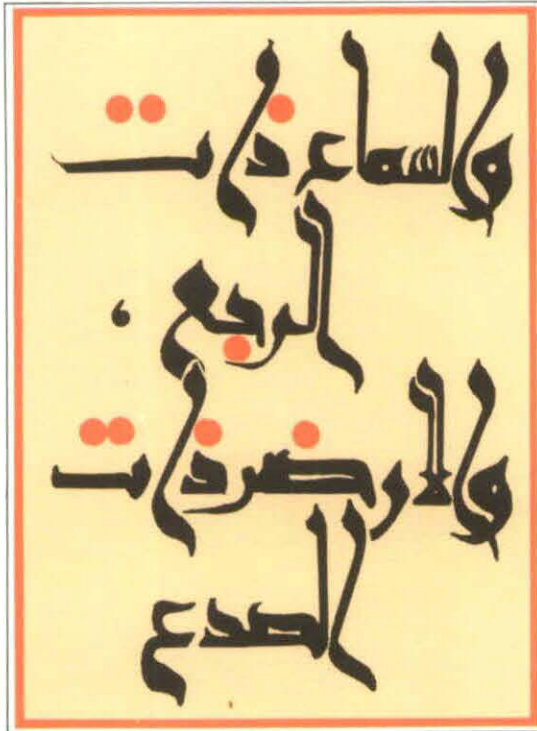 والسماء ذات
الرجع ،
والارض ذات
الصدع